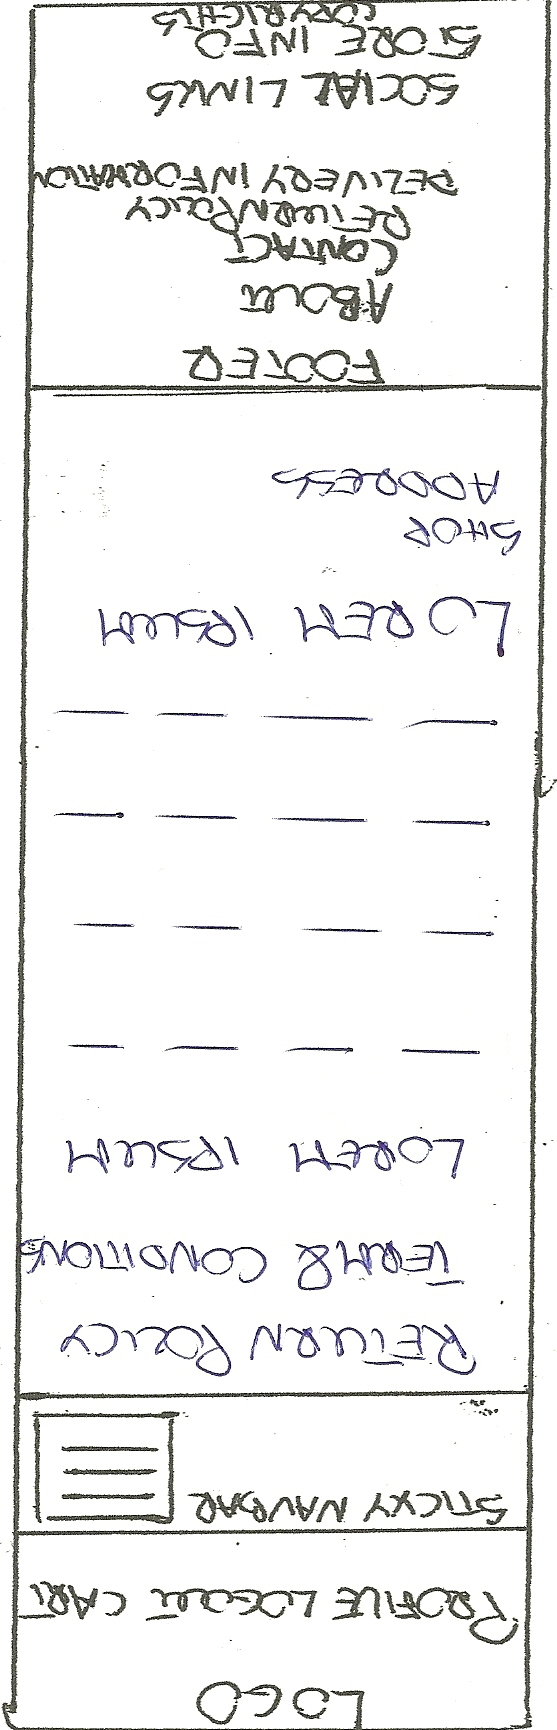 LOGO
PROFILE LOGOUT CART
STICKY NAVBAR
RETURN POLICY
TERM & CONDITIONS
LOREM IPSUM
LOREM IPSUM
SHOP
ADDRESS
FOOTER
ABOUT
CONTACT
RETURN POLICY
DELIVERY INFORMATION
SOCIAL LINKS
STORE INFO
COPYRIGHTS